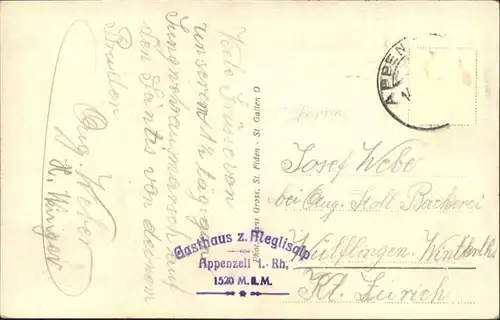 Viele Grüsse von
unserem 1½ tägigen
Jungmännermarsch auf
den Säntis von deinem
Bruder
Aug. Webe
Phot. Hans Gross, St. Fiden - St. Gallen O
APPEN
Herrn
Josef Webe
bei Aug. Stoll Bäckerei
Wülflingen. Winterthur
Kt. Zürich
Gasthaus z. Meglisalp
Appenzell I.-Rh.
1520 M.ü.M.